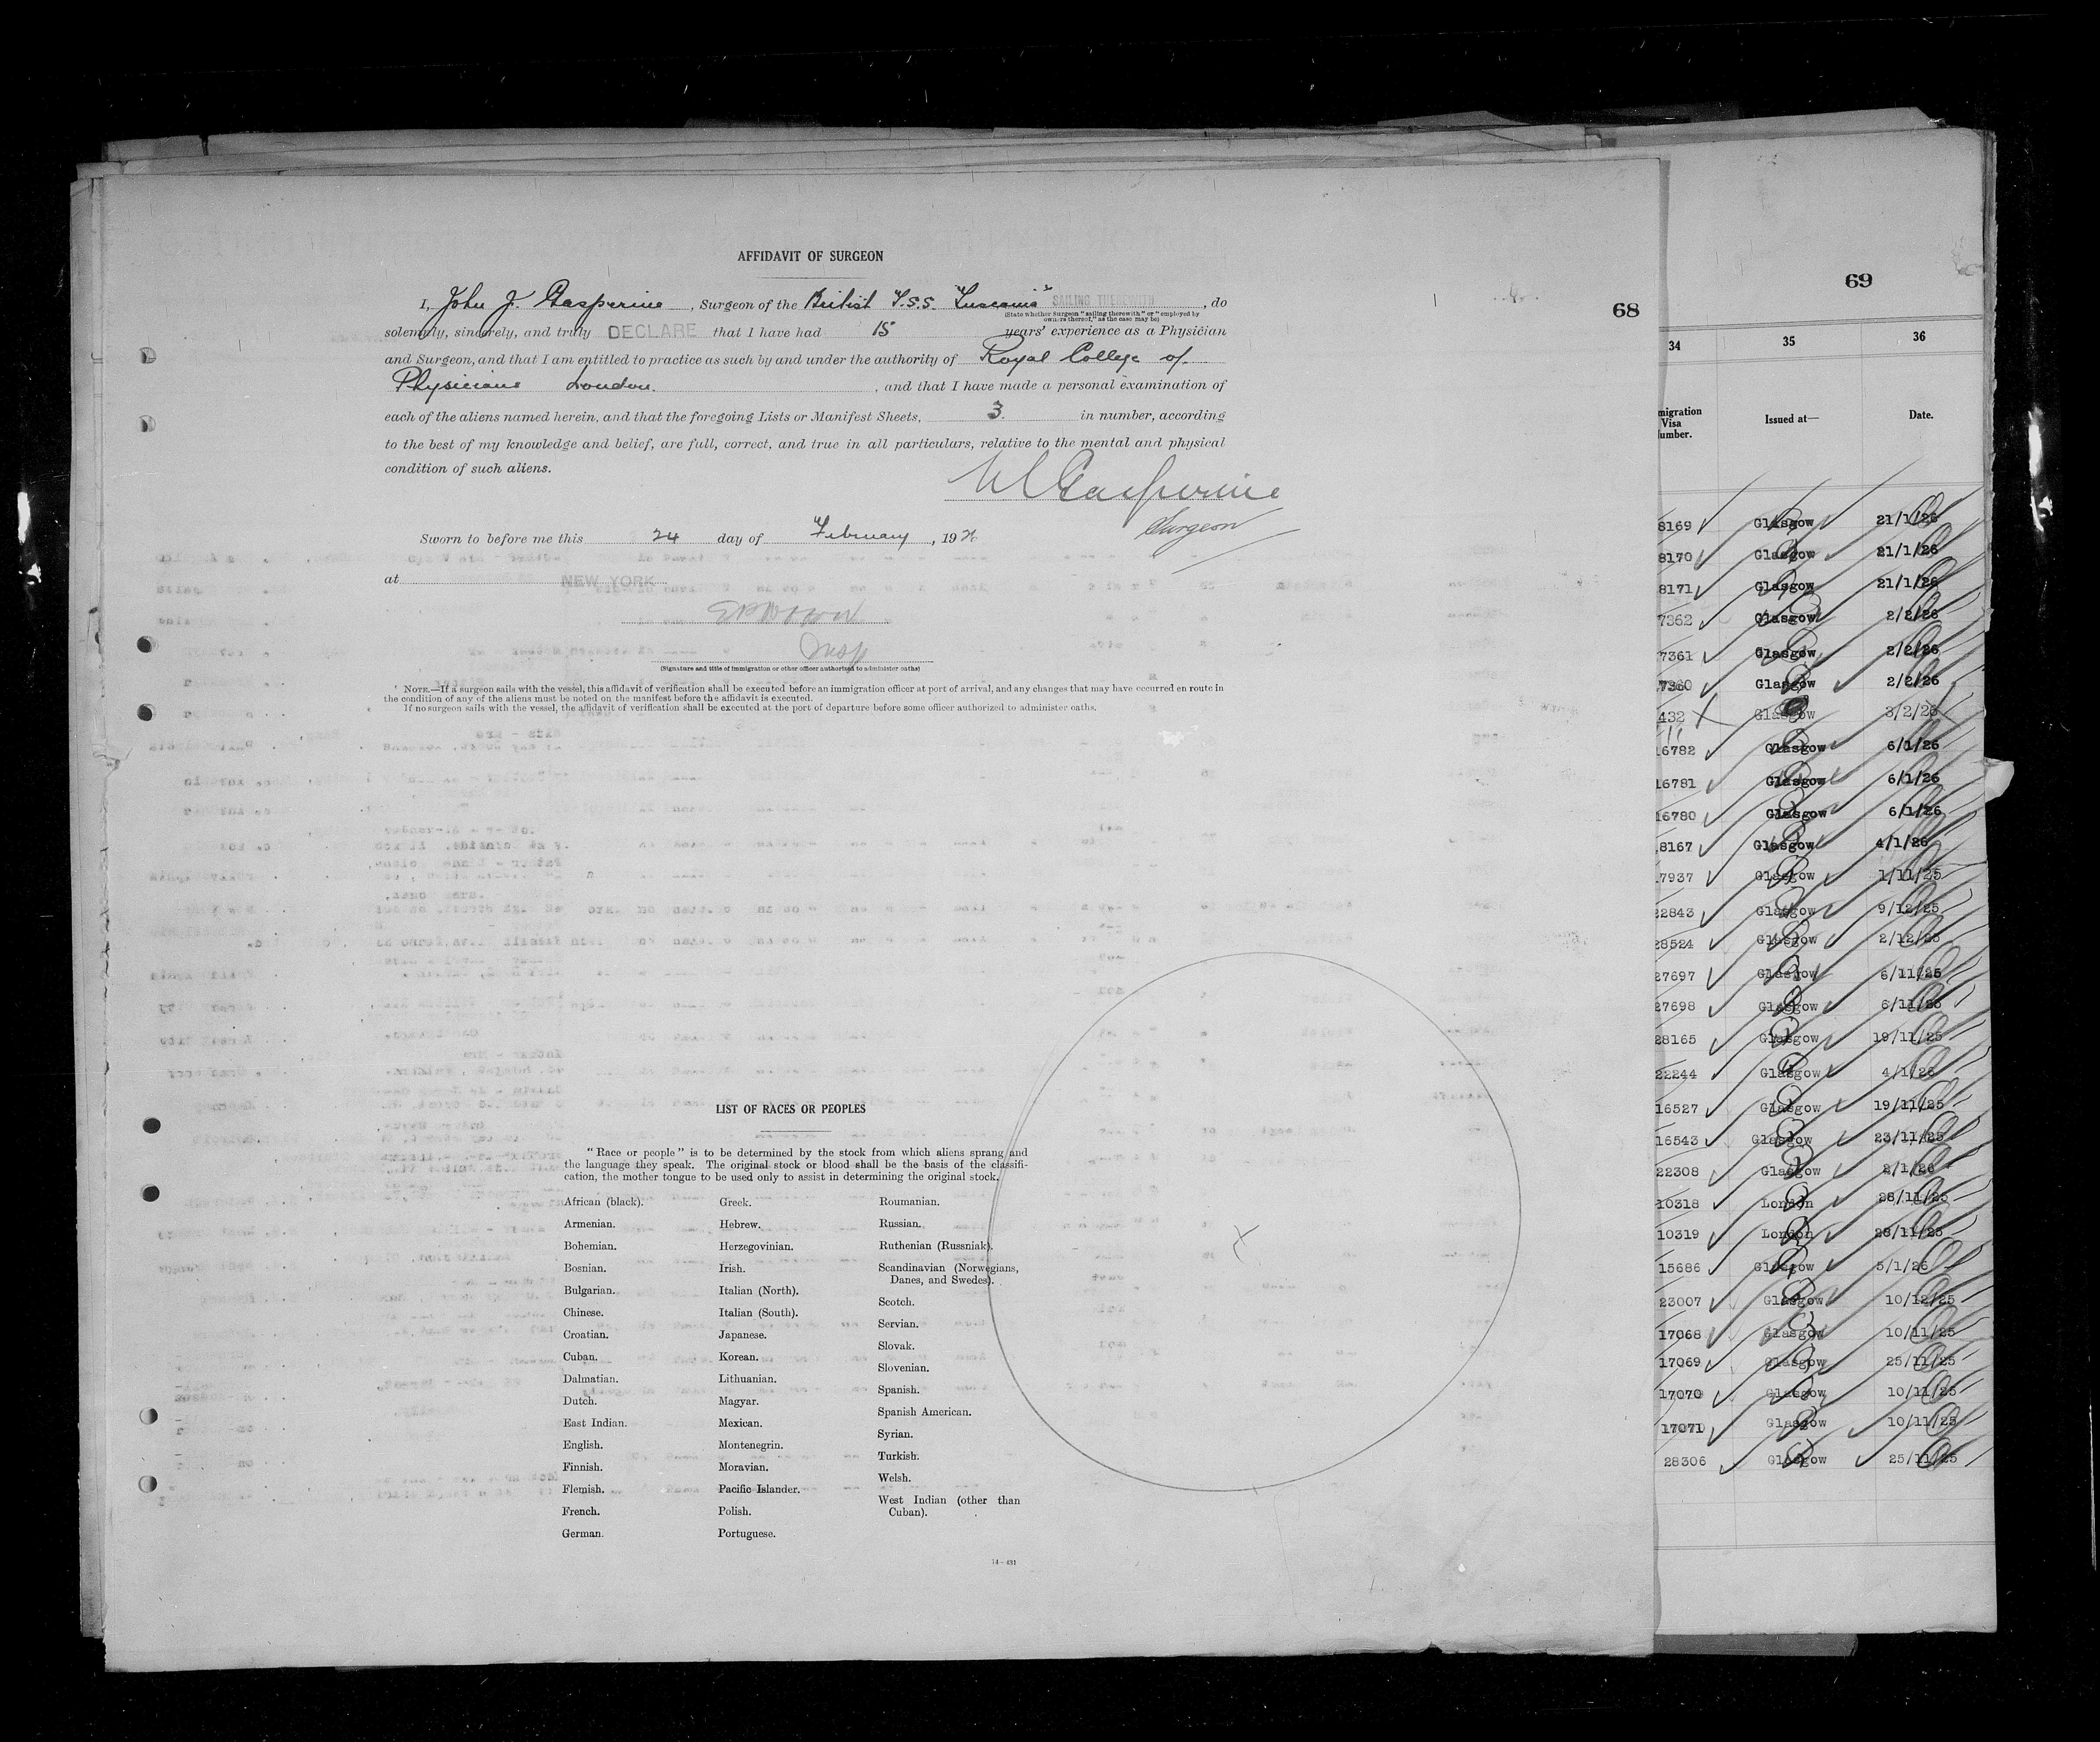 AFFIDAVIT OF SURGEON
I, John J. Gasperine, Surgeon of the British T.S.S. "Tuscania" SAILING THEREWITH, do
(State whether Surgeon "sailing therewith" or "employed by
owners thereof," as the case may be)
solemnly, sincerely, and truly DECLARE that I have had 15 years' experience as a Physician
and Surgeon, and that I am entitled to practice as such by and under the authority of Royal College of
Physicians London., and that I have made a personal examination of
each of the aliens named herein, and that the foregoing Lists or Manifest Sheets, 3. in number, according
to the best of my knowledge and belief, are full, correct, and true in all particulars, relative to the mental and physical
condition of such aliens.
Gasperine
Surgeon
Sworn to before me this 24 day of February, 1926
at NEW YORK
Insp
(Signature and title of immigration or other officer authorized to administer oaths)
NOTE.—If a surgeon sails with the vessel, this affidavit of verification shall be executed before an immigration officer at port of arrival, and any changes that may have occurred en route in
the condition of any of the aliens must be noted on the manifest before the affidavit is executed.
If no surgeon sails with the vessel, the affidavit of verification shall be executed at the port of departure before some officer authorized to administer oaths.
LIST OF RACES OR PEOPLES
"Race or people" is to be determined by the stock from which aliens sprang and
the language they speak. The original stock or blood shall be the basis of the classifi-
cation, the mother tongue to be used only to assist in determining the original stock.
African (black).
Armenian.
Bohemian.
Bosnian.
Bulgarian.
Chinese.
Croatian.
Cuban.
Dalmatian.
Dutch.
East Indian.
English.
Finnish.
Flemish.
French.
German.
Greek.
Hebrew.
Herzegovinian.
Irish.
Italian (North).
Italian (South).
Japanese.
Korean.
Lithuanian.
Magyar.
Mexican.
Montenegrin.
Moravian.
Pacific Islander.
Polish.
Portuguese.
Roumanian.
Russian.
Ruthenian (Russniak).
Scandinavian (Norwegians,
Danes, and Swedes).
Scotch.
Servian.
Slovak.
Slovenian.
Spanish.
Spanish American.
Syrian.
Turkish.
Welsh.
West Indian (other than
Cuban).
14—431
68
69
34 35 36
migration
Visa
umber.
Issued at—
Date.
8169 Glasgow 21/1/26
8170 Glasgow 21/1/26
8171 Glasgow 21/1/26
7362 Glasgow 2/2/26
7361 Glasgow 2/2/26
7360 Glasgow 2/2/26
432 Glasgow 3/2/26
16782 Glasgow 6/1/26
16781 Glasgow 6/1/26
16780 Glasgow 6/1/26
8167 Glasgow 4/1/26
7937 Glasgow 1/11/25
22843 Glasgow 9/12/25
28524 Glasgow 2/12/25
27697 Glasgow 6/11/25
27698 Glasgow 6/11/25
28165 Glasgow 19/11/25
22244 Glasgow 4/1/26
16527 Glasgow 19/11/25
16543 Glasgow 23/11/25
22308 Glasgow 2/1/26
10318 London 28/11/25
10319 London 28/11/25
15686 Glasgow 5/1/26
23007 Glasgow 10/12/25
17068 Glasgow 10/11/25
17069 Glasgow 25/11/25
17070 Glasgow 10/11/25
17071 Glasgow 10/11/25
28306 Glasgow 25/11/25